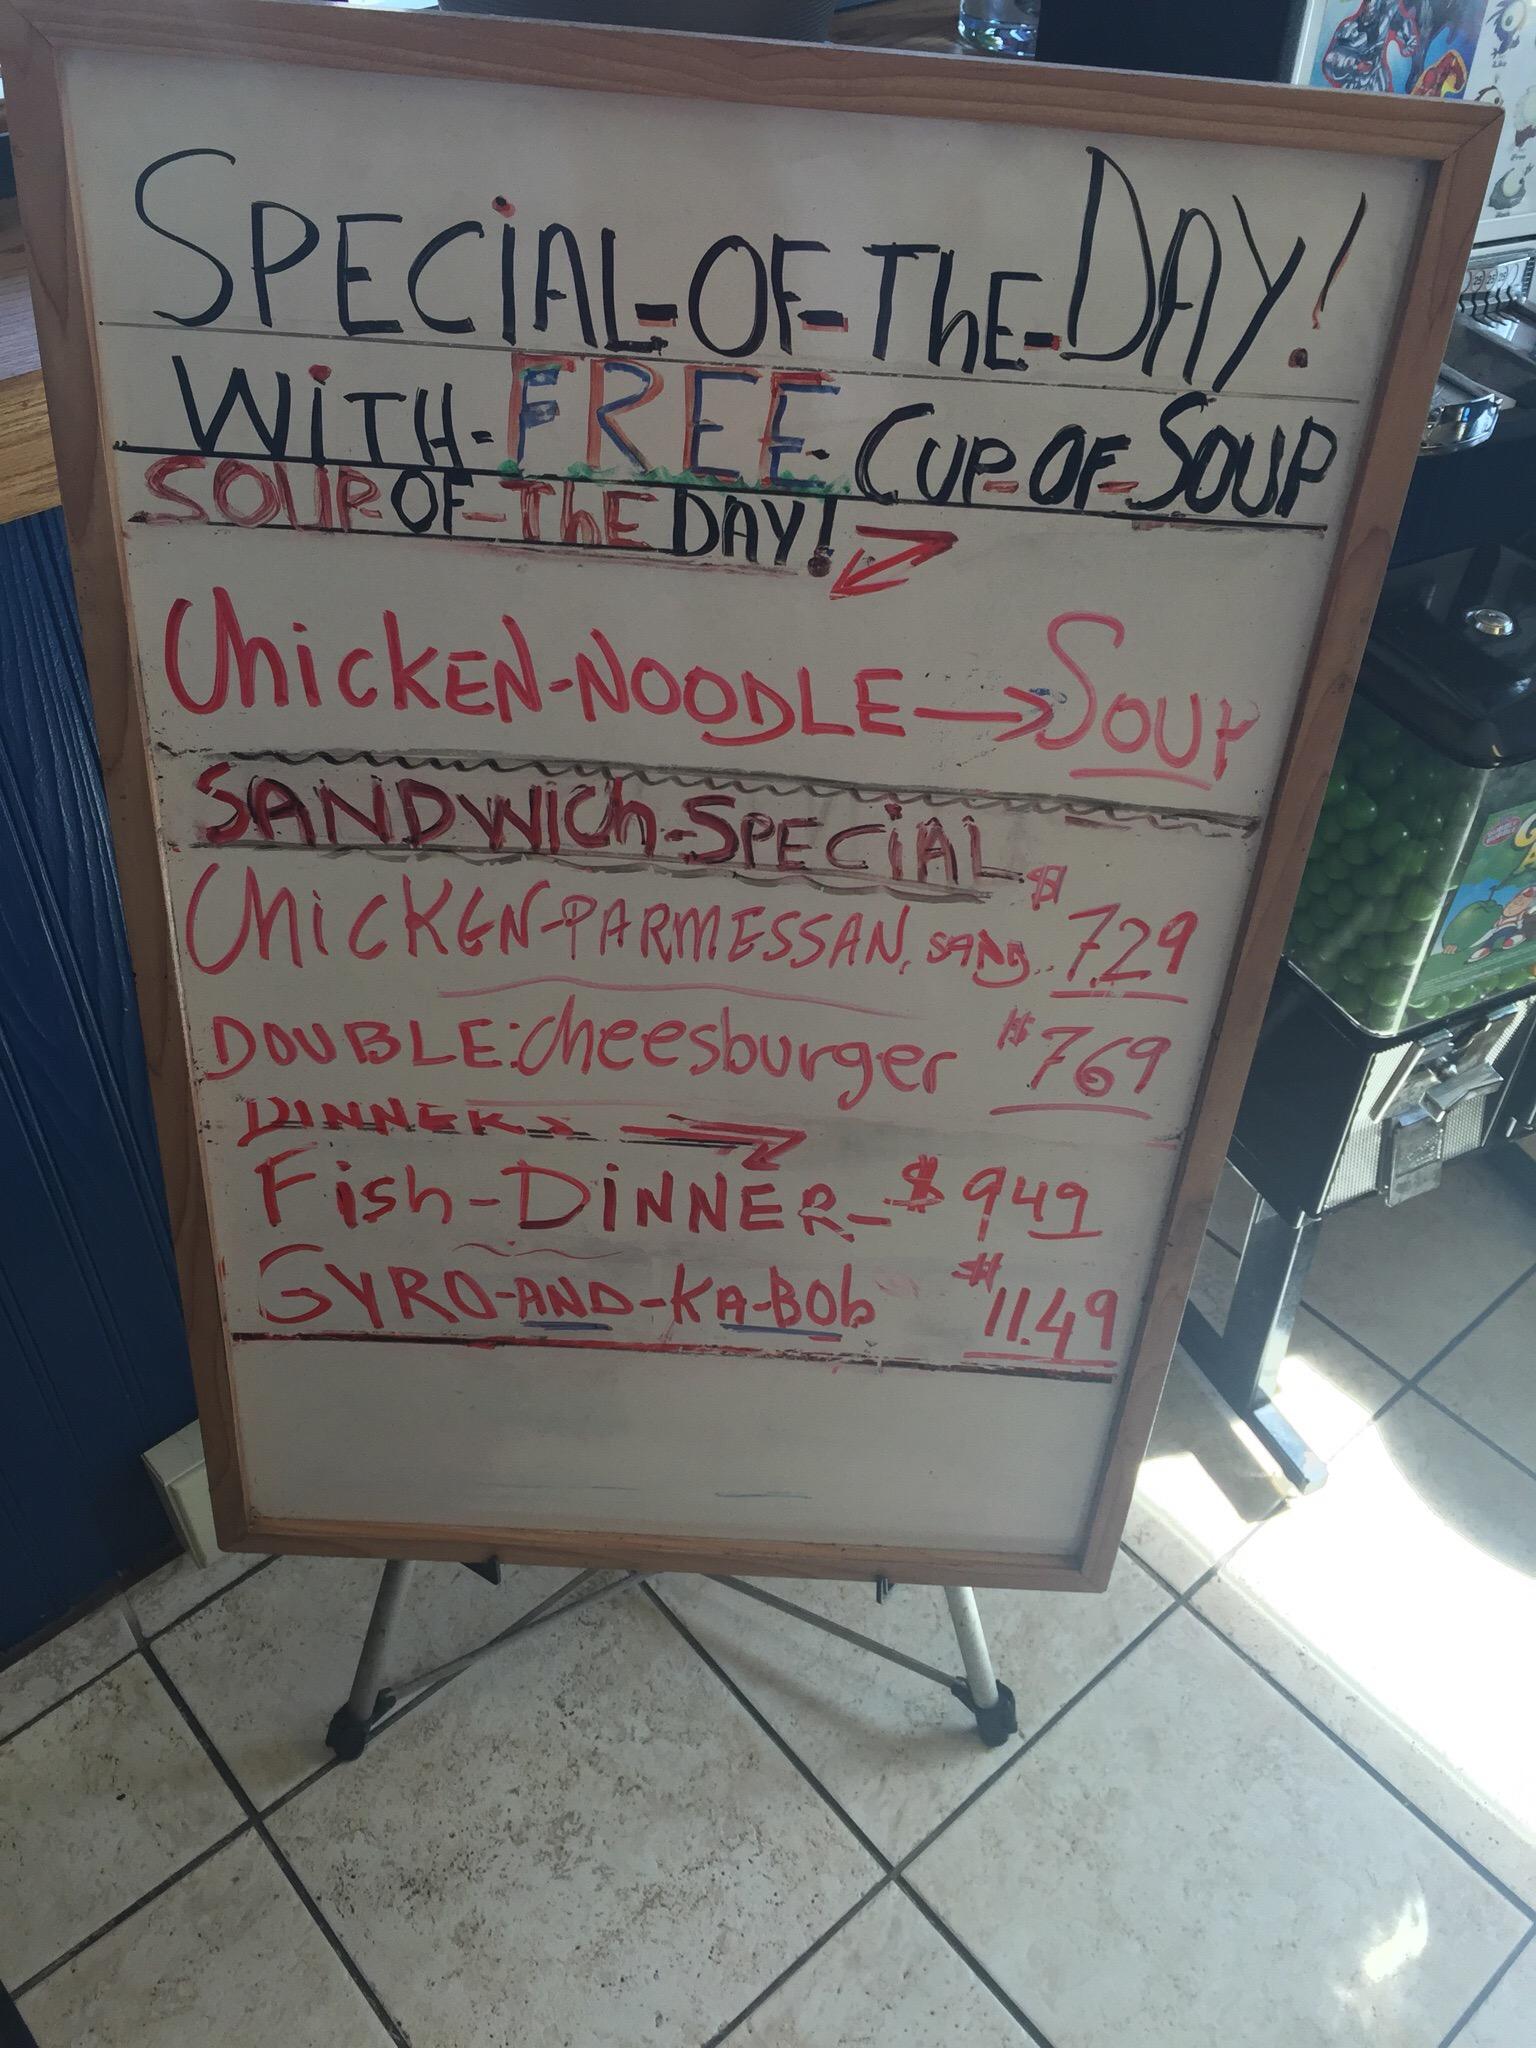 SPECiAL-OF-ThE-DAY!
WiTH-FREE CUP-OF-SOUP
SOUP-OF-ThE DAY!
ChicKEN-NOODLE → SOUP
SANDWICh-SPECiAL
ChicKEN-PARMESSAN. SAND.. $7.29
DOUBLE: cheesburger $769
DINNERS
Fish-DiNNER- $949
GYRO-AND-KA-BOb $11.49